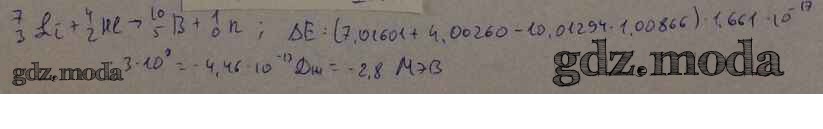 ⁷₃Li + ⁴₂He → ¹⁰₅B + ¹₀n ; ΔE = (7,01601 + 4,00260 - 10,01294 - 1,00866) · 1,661 · 10⁻¹⁷
gdz.moda 3·10⁸ = -4,46·10⁻¹³ Дж = -2,8 МэВ gdz.moda